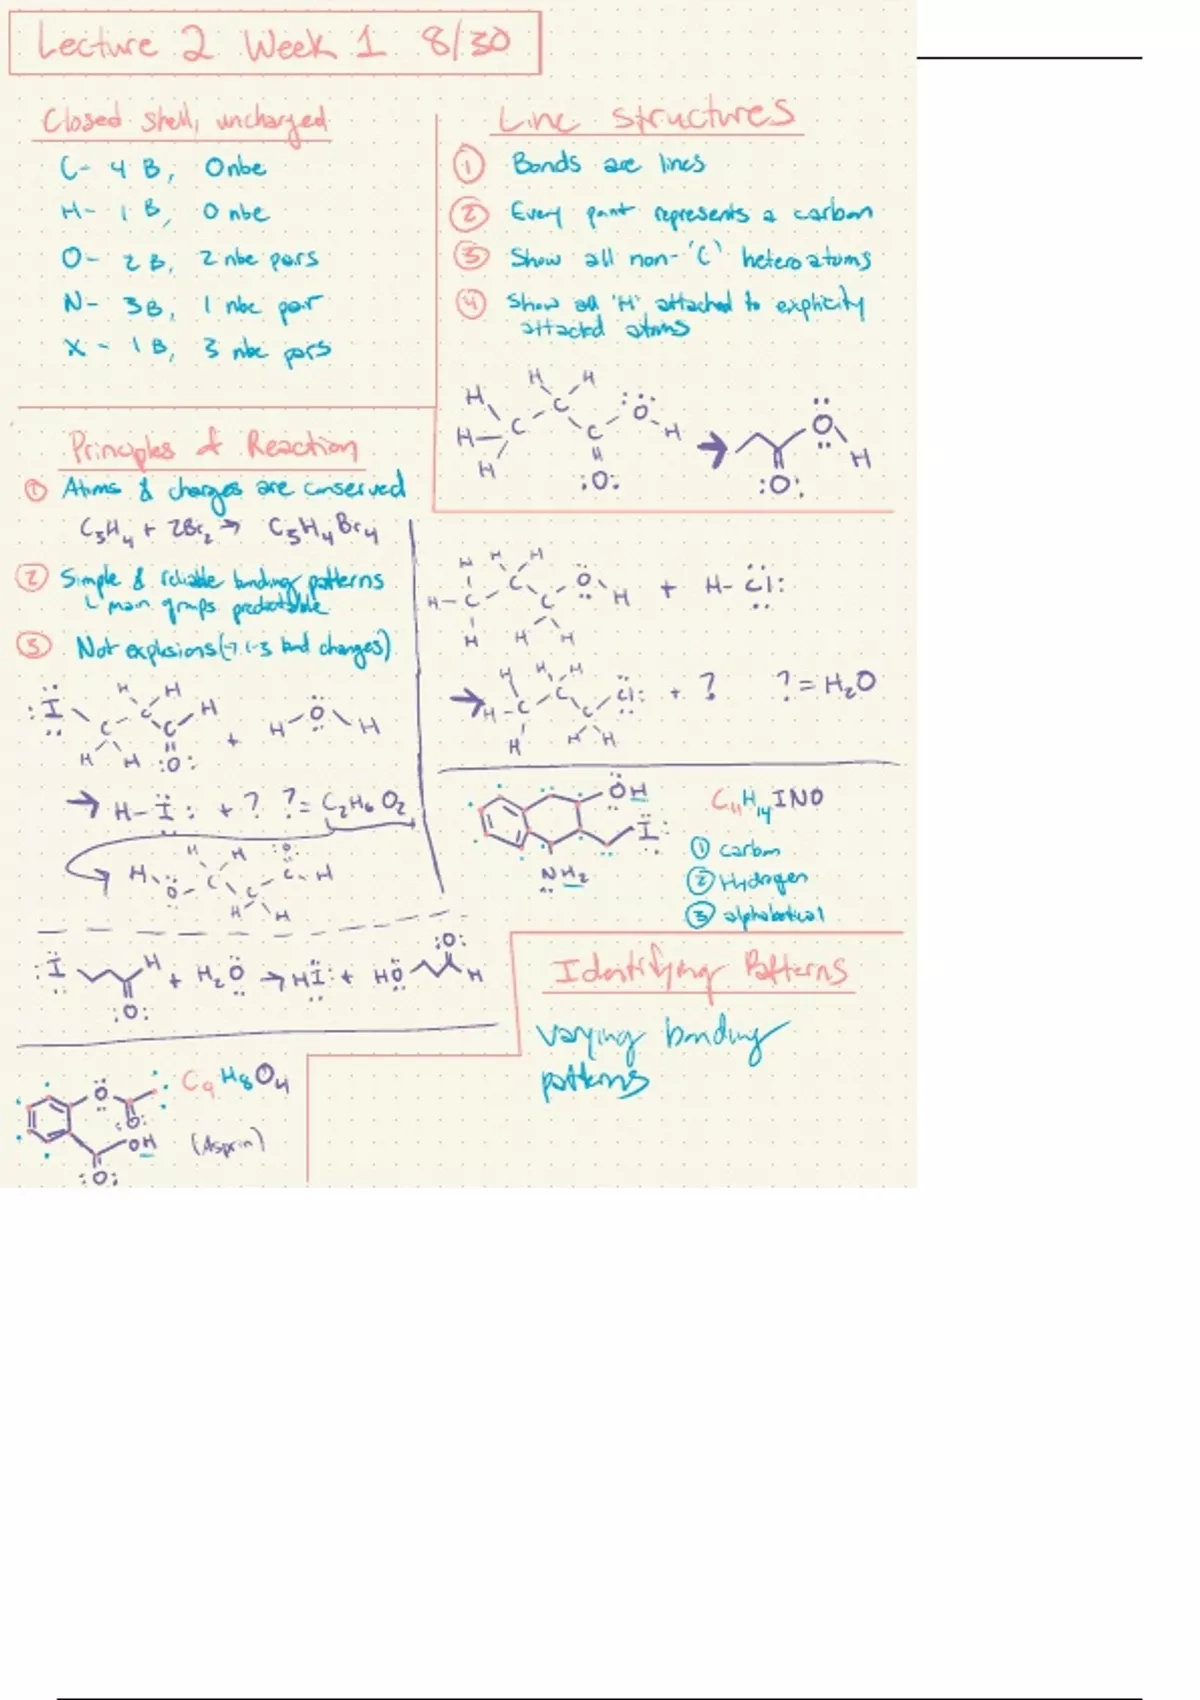 Lecture 2 Week 1 8/30
Closed shell, uncharged
C- 4 B, 0 nbe
H- 1 B, 0 nbe
O- 2 B, 2 nbe pairs
N- 3B, 1 nbe pair
X - 1 B, 3 nbe pairs
Line structures
① Bonds are lines
② Every point represents a carbon
③ Show all non-'C' heteroatoms
④ Show all 'H' attached to explicity
attacted atoms
Principles of Reaction
① Atoms & charges are conserved
C₃H₄ + 2Br₂ → C₃H₄Br₄
② Simple & reliable bonding patterns
main groups predictable
③ Not explosions (→ 1-3 bond changes)
+ H-O-H
→ H-I: + ? ? = C₂H₆O₂
+ H₂O → HI: + HO
H
+ H-Cl:
→ + ? ? = H₂O
OH
I:
NH₂
C₁₁H₁₄INO
① carbon
② Hydrogen
③ alphabetical
Identifying Patterns
varying bonding
patterns
C₉H₈O₄
(Asprin)
OH
:O: